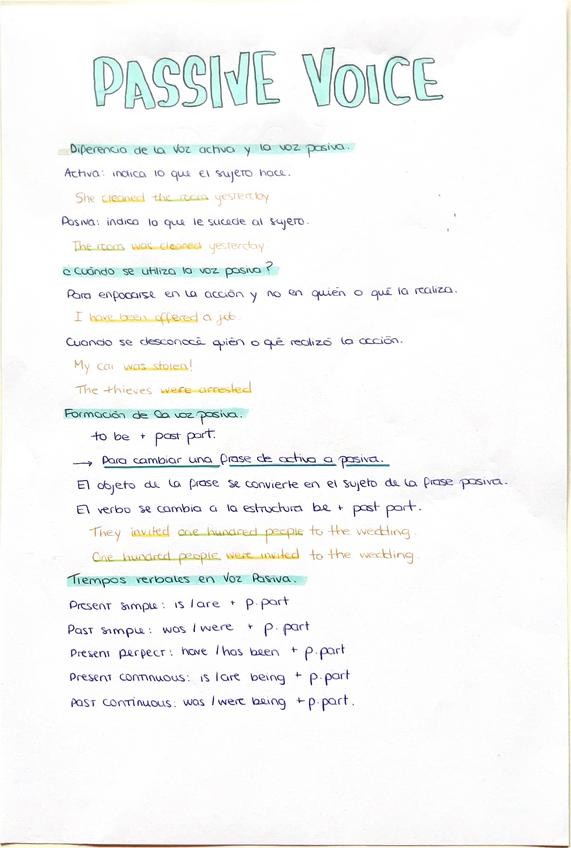 PASSIVE VOICE
Diferencia de la voz activa y la voz pasiva.
Activa: indica lo que el sujeto hace.
She cleaned the room yesterday
Pasiva: indica lo que le sucede al sujeto.
The room was cleaned yesterday
¿Cuándo se utiliza la voz pasiva?
Para enfocarse en la acción y no en quién o qué la realiza.
I have been offered a job.
Cuando se desconoce quién o qué realizó la acción.
My car was stolen!
The thieves were arrested
Formación de la voz pasiva.
to be + past part.
→ Para cambiar una frase de activa a pasiva.
El objeto de la frase se convierte en el sujeto de la frase pasiva.
El verbo se cambia a la estructura be + past part.
They invited one hundred people to the wedding.
One hundred people were invited to the wedding.
Tiempos verbales en Voz Pasiva.
Present simple: is / are + p. part
Past simple: was / were + p. part
Present perfect: have / has been + p. part
Present continuous: is / are being + p. part
Past continuous: was / were being + p. part.